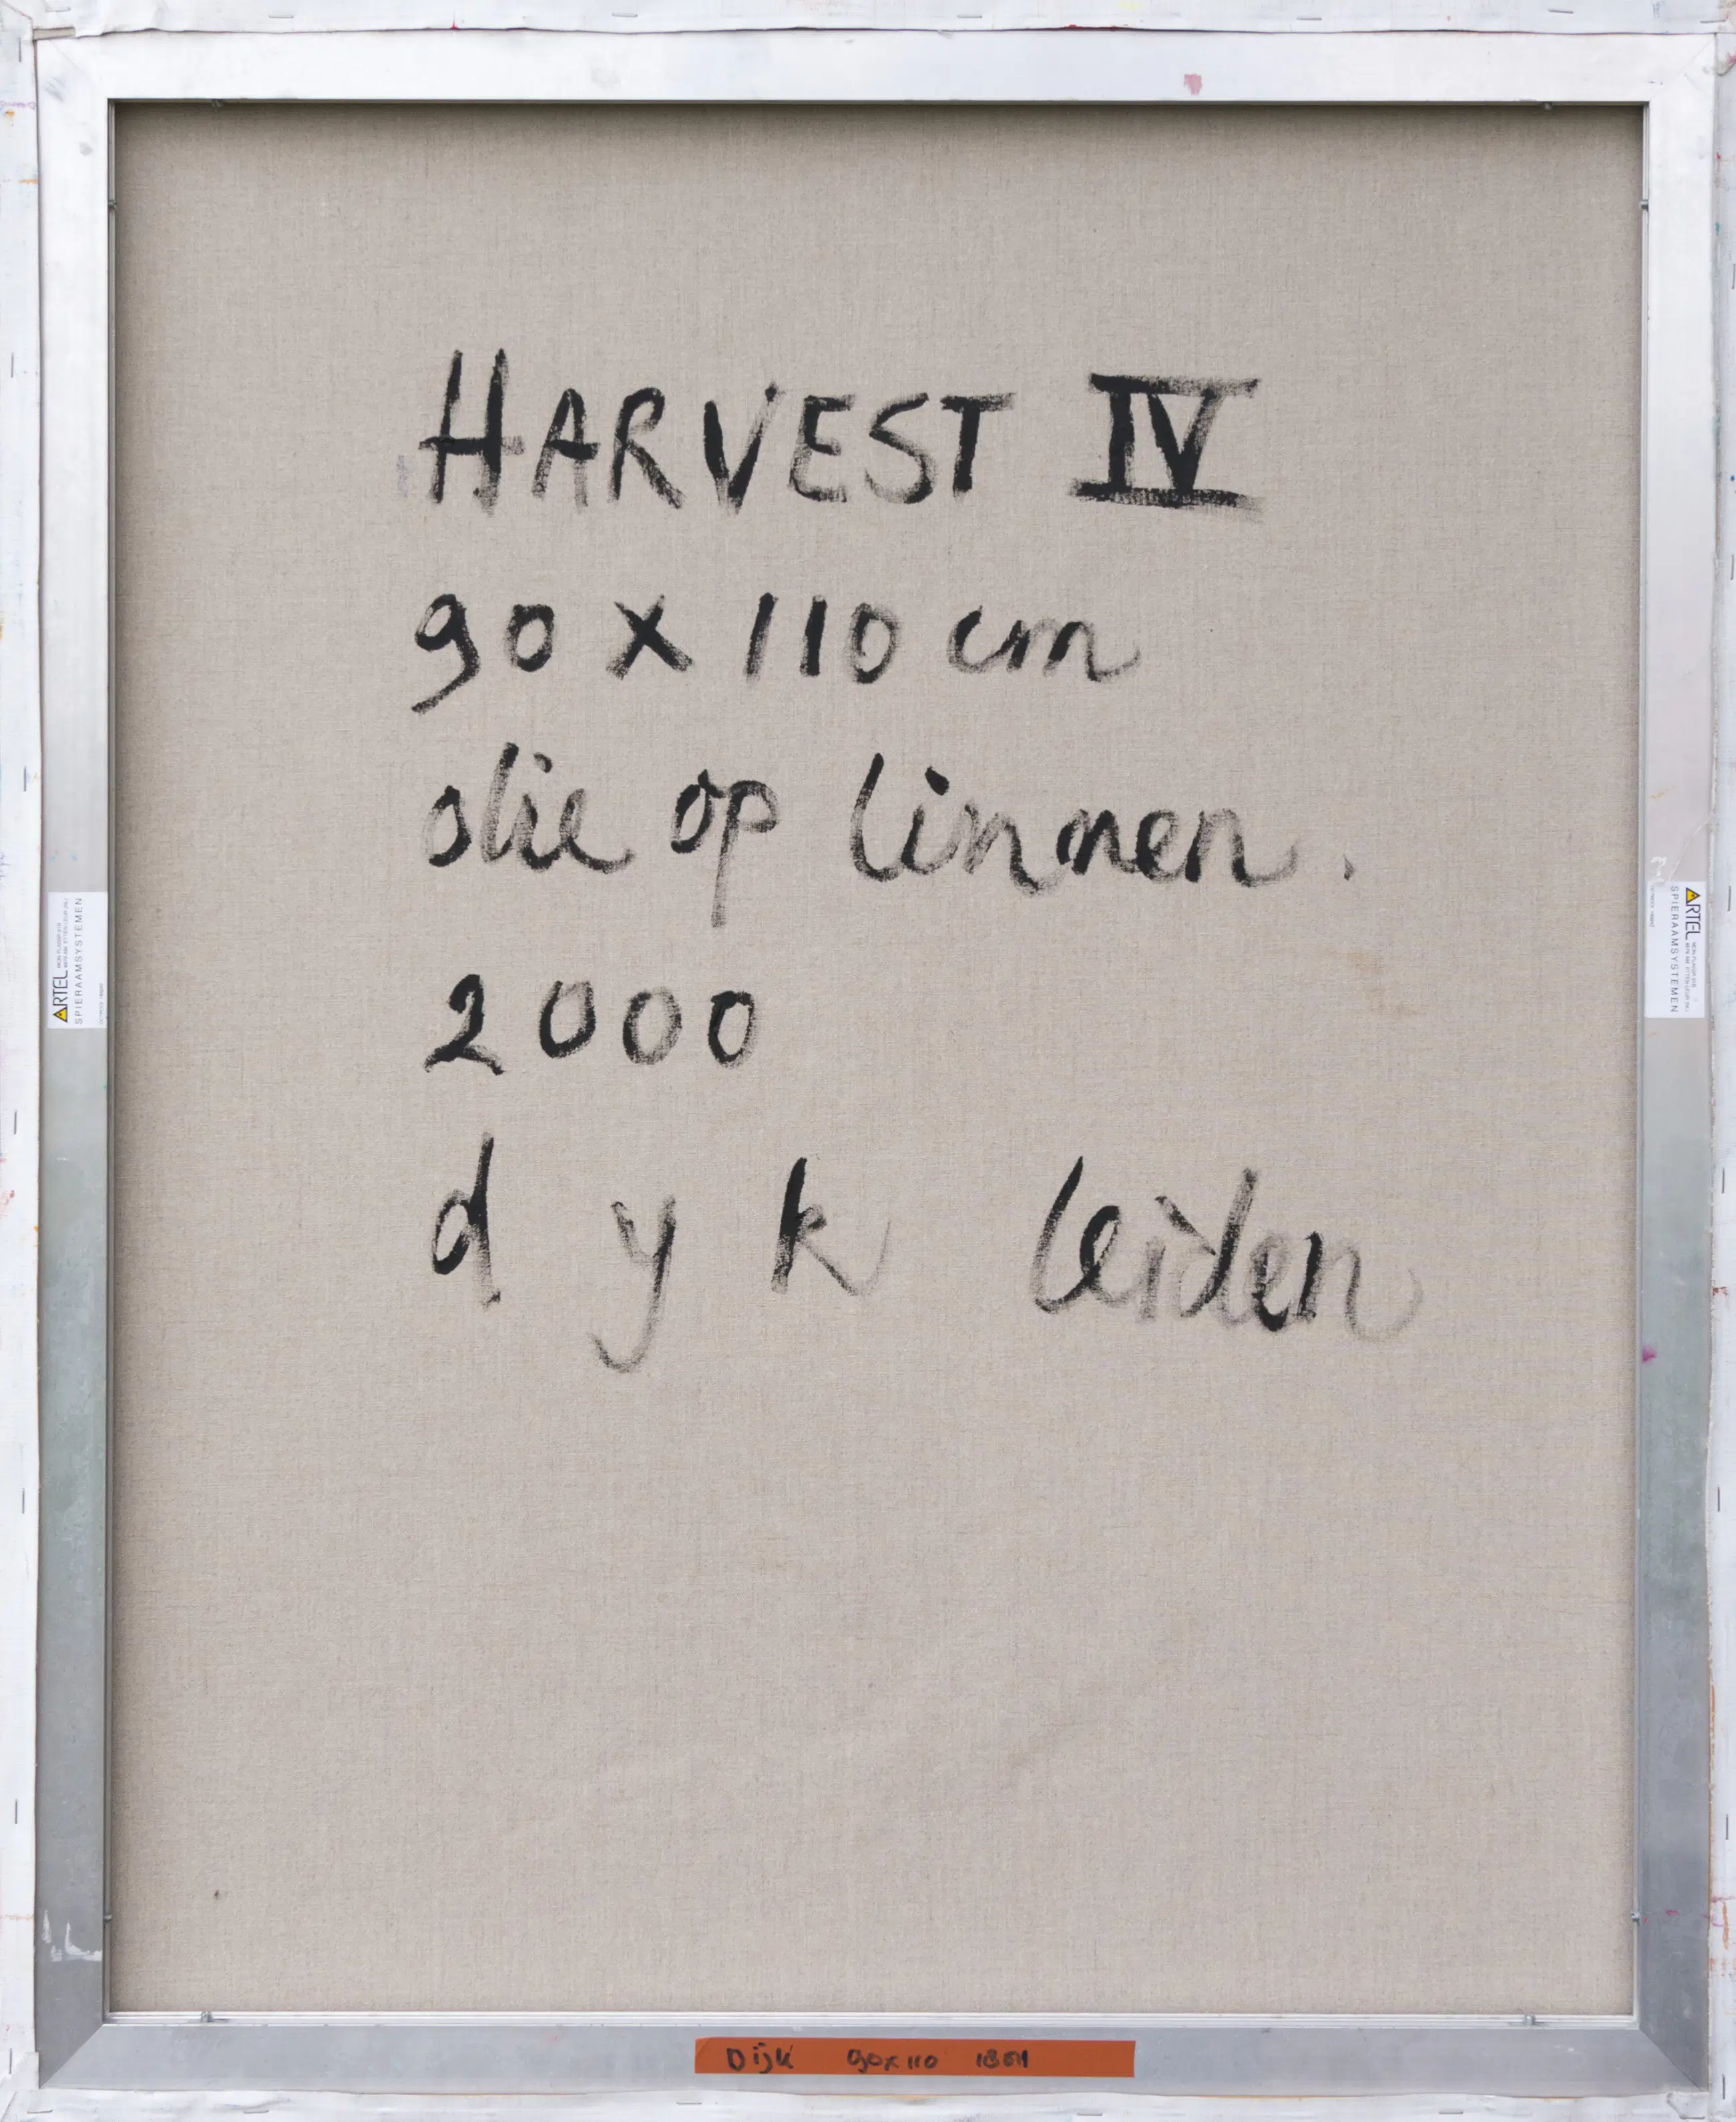 HARVEST IV
90 x 110 cm
olie op linnen.
2000
d y k leiden
ARTEL
SPIERAAMSYSTEMEN
ARTEL
SPIERAAMSYSTEMEN
Dijk 90x110